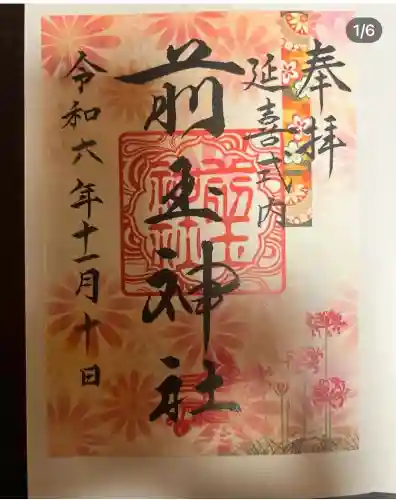 1/6
奉拝
延喜式内
前玉神社
令和六年十一月十日
前玉神社